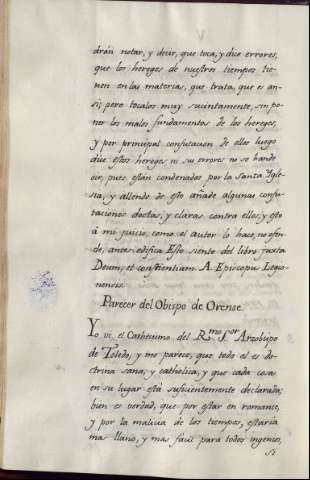 drán notar, y decir, que toca, y dice errores,
que los hereges de nuestros tiempos tie-
nen en las materias, que trata, que es an-
si; pero tocalos muy sucintamente, sin po-
ner los malos fundamentos de los hereges,
y por principal confutacion de ellos luego
dice estos hereges ni su errores no se han de
oir, pues están condenados por la Santa Ygle-
sia, y allende de esto añade algunas confu-
taciones doctas, y claras contra ellos; y esto
á mi juicio, como el autor lo hace, no ofen-
de, antes edifica. Esto siente del libro juxta
Deum, et conscientiam A. Episcopus Legio-
nensis.
Parecer del Obispo de Orense.
Yo vi el Cathecismo del R.mo S.or Arzobispo
de Toledo, y me parece, que todo el es doc-
trina sana, y catholica, y que cada cosa
en su lugar está suficientemente declarada;
bien es verdad, que por estar en romance,
y por la malicia de los tiempos, estaria
mas llano, y mas facil para todos ingenios,
si